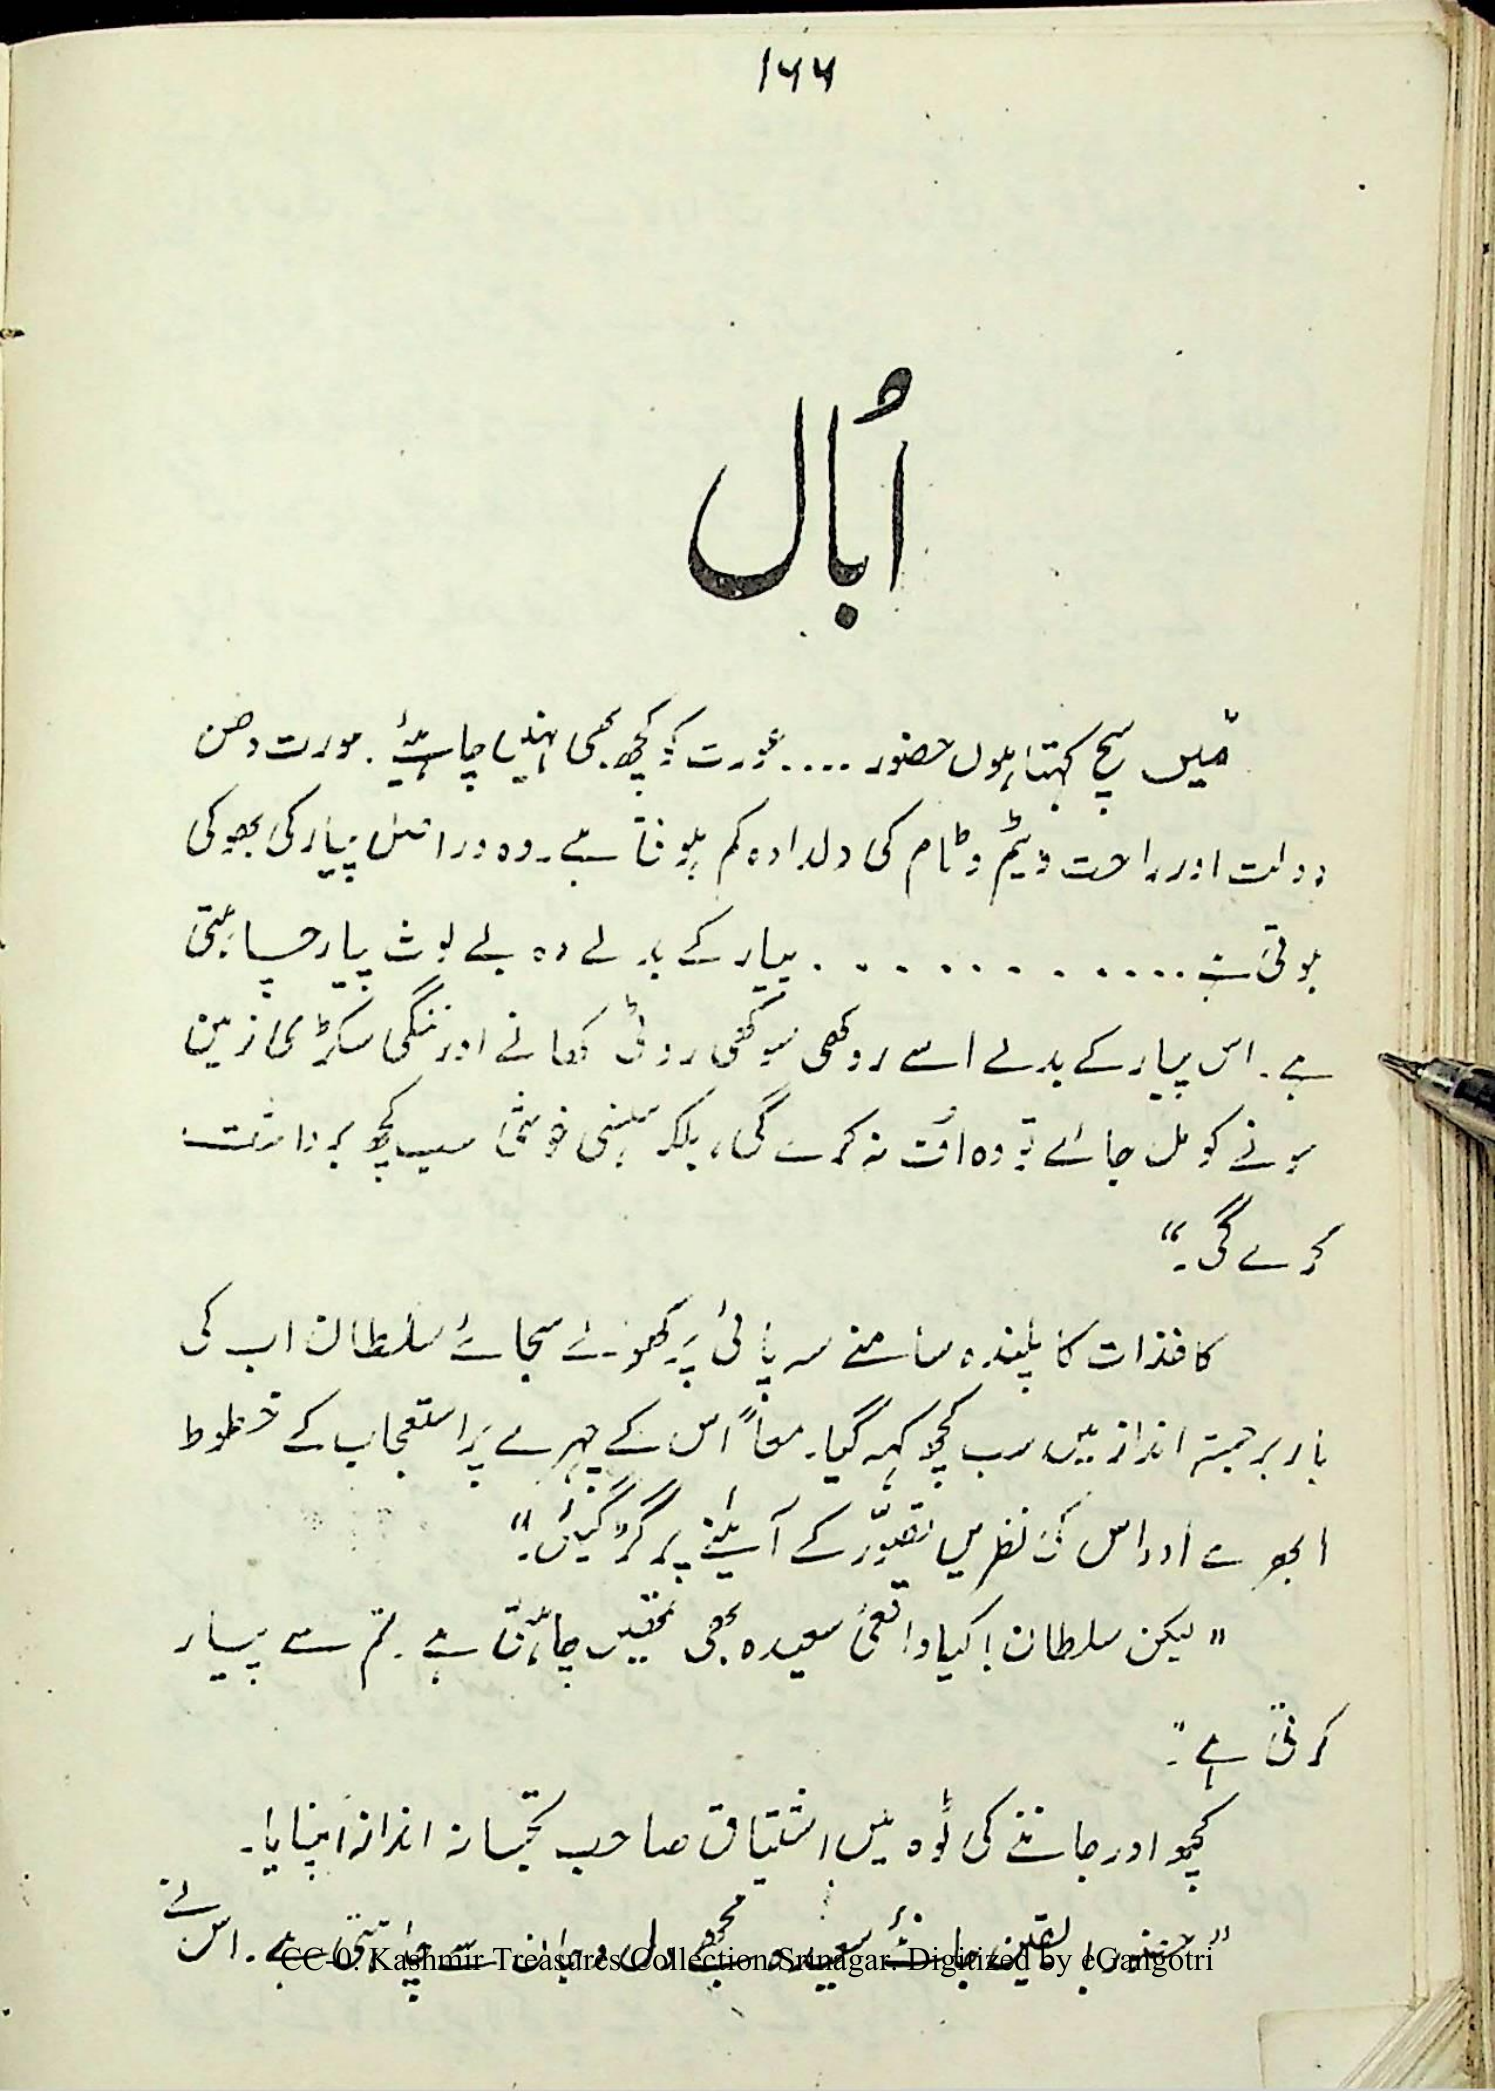 ۱۶۶
اُبال
"میں سچ کہتا ہوں حضور .... عورت کو کچھ بھی نہیں چاہیئے. عورت دھن
دولت اور راحت ویٹم وٹام کی دلدادہ کم ہوتی ہے۔ وہ دراصل پیار کی بھوکی
ہوتی ہے ............. پیار کے بدلے وہ بے لوث پیار چاہتی
ہے۔ اس پیار کے بدلے اسے روکھی سوکھی روٹی کھانے اور ننگی سکڑی زمین
سونے کو مل جائے تو وہ اُف نہ کرے گی، بلکہ ہنسی خوشی سب کچھ برداشت
کرے گی۔"
کاغذات کا پلندہ سامنے سہ پائی پر کھولے سجائے سلطان اب کی
بار برجستہ انداز میں سب کچھ کہہ گیا۔ معاً اس کے چہرے پر استعجاب کے خطوط
ابھرے اور اس کی نظریں تصوّر کے آئینے پر گڑ گیئں۔"
"لیکن سلطان! کیا واقعی سعیدہ بھی تمھیں چاہتی ہے۔ تم سے پیار
کرتی ہے"۔
کچھ اور جاننے کی ٹوہ میں اشتیاق صاحب نے انداز اپنایا۔
"حضور! یقین جانئے سعیدہ مجھے دل و جان سے چاہتی ہے۔ اس نے
CC-0. Kashmir Treasures Collection Srinagar. Digitized by eGangotri